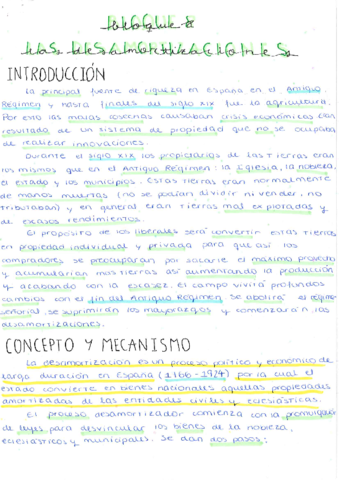 INTRODUCCIÓN
La principal fuente de riqueza en España en el Antiguo
Régimen y hasta finales del siglo XIX fue la agricultura.
Por esto las malas cosechas causaban crisis económicas con
resultado de un sistema de propiedad que no se ocupaba
de realizar innovaciones.
Durante el siglo XIX los propietarios de las tierras eran
los mismos que en el Antiguo Régimen: la Iglesia, la nobleza,
el estado y los municipios. Estas tierras eran normalmente
de manos muertas (no se podían dividir ni vender, no
tributaban) y en general eran tierras mal explotadas y
de escasos rendimientos.
El propósito de los liberales será convertir estas tierras
en propiedad individual y privada para que así los
compradores se preocuparan por sacarle el máximo provecho
y acumularían más tierras así aumentando la producción
y acabando con la escasez. El campo vivirá profundos
cambios con el fin del Antiguo Régimen: se abolirá el régimen
señorial, se suprimirán los mayorazgos y comenzarán las
desamortizaciones.
CONCEPTO Y MECANISMO
La desamortización es un proceso político y económico de
larga duración en España (1766-1924) por la cual el
estado convierte en bienes nacionales aquellas propiedades
amortizadas de las entidades civiles y eclesiásticas.
El proceso desamortizador comienza con la promulgación
de leyes para desvincular los bienes de la nobleza,
eclesiásticos y municipales. Se dan dos pasos: